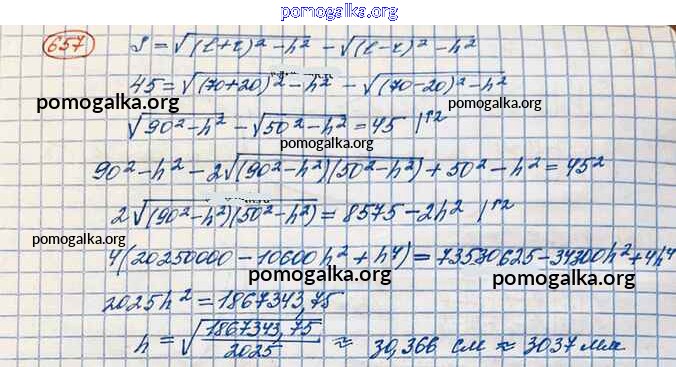 pomogalka.org
657 S = √((l+r)² - h²) - √((l-r)² - h²)
45 = √((70+20)² - h²) - √((70-20)² - h²)
pomogalka.org pomogalka.org
√(90² - h²) - √(50² - h²) = 45 |↑²
pomogalka.org
90² - h² - 2√((90² - h²)(50² - h²)) + 50² - h² = 45²
2√((90² - h²)(50² - h²)) = 8575 - 2h² |↑²
pomogalka.org
4(20250000 - 10600h² + h⁴) = 73530625 - 34300h² + 4h⁴
pomogalka.org pomogalka.org
2025h² = 1867343,75
h = √(1867343,75/2025) ≈ 30,366 см ≈ 3037 мм
pomogalka.org